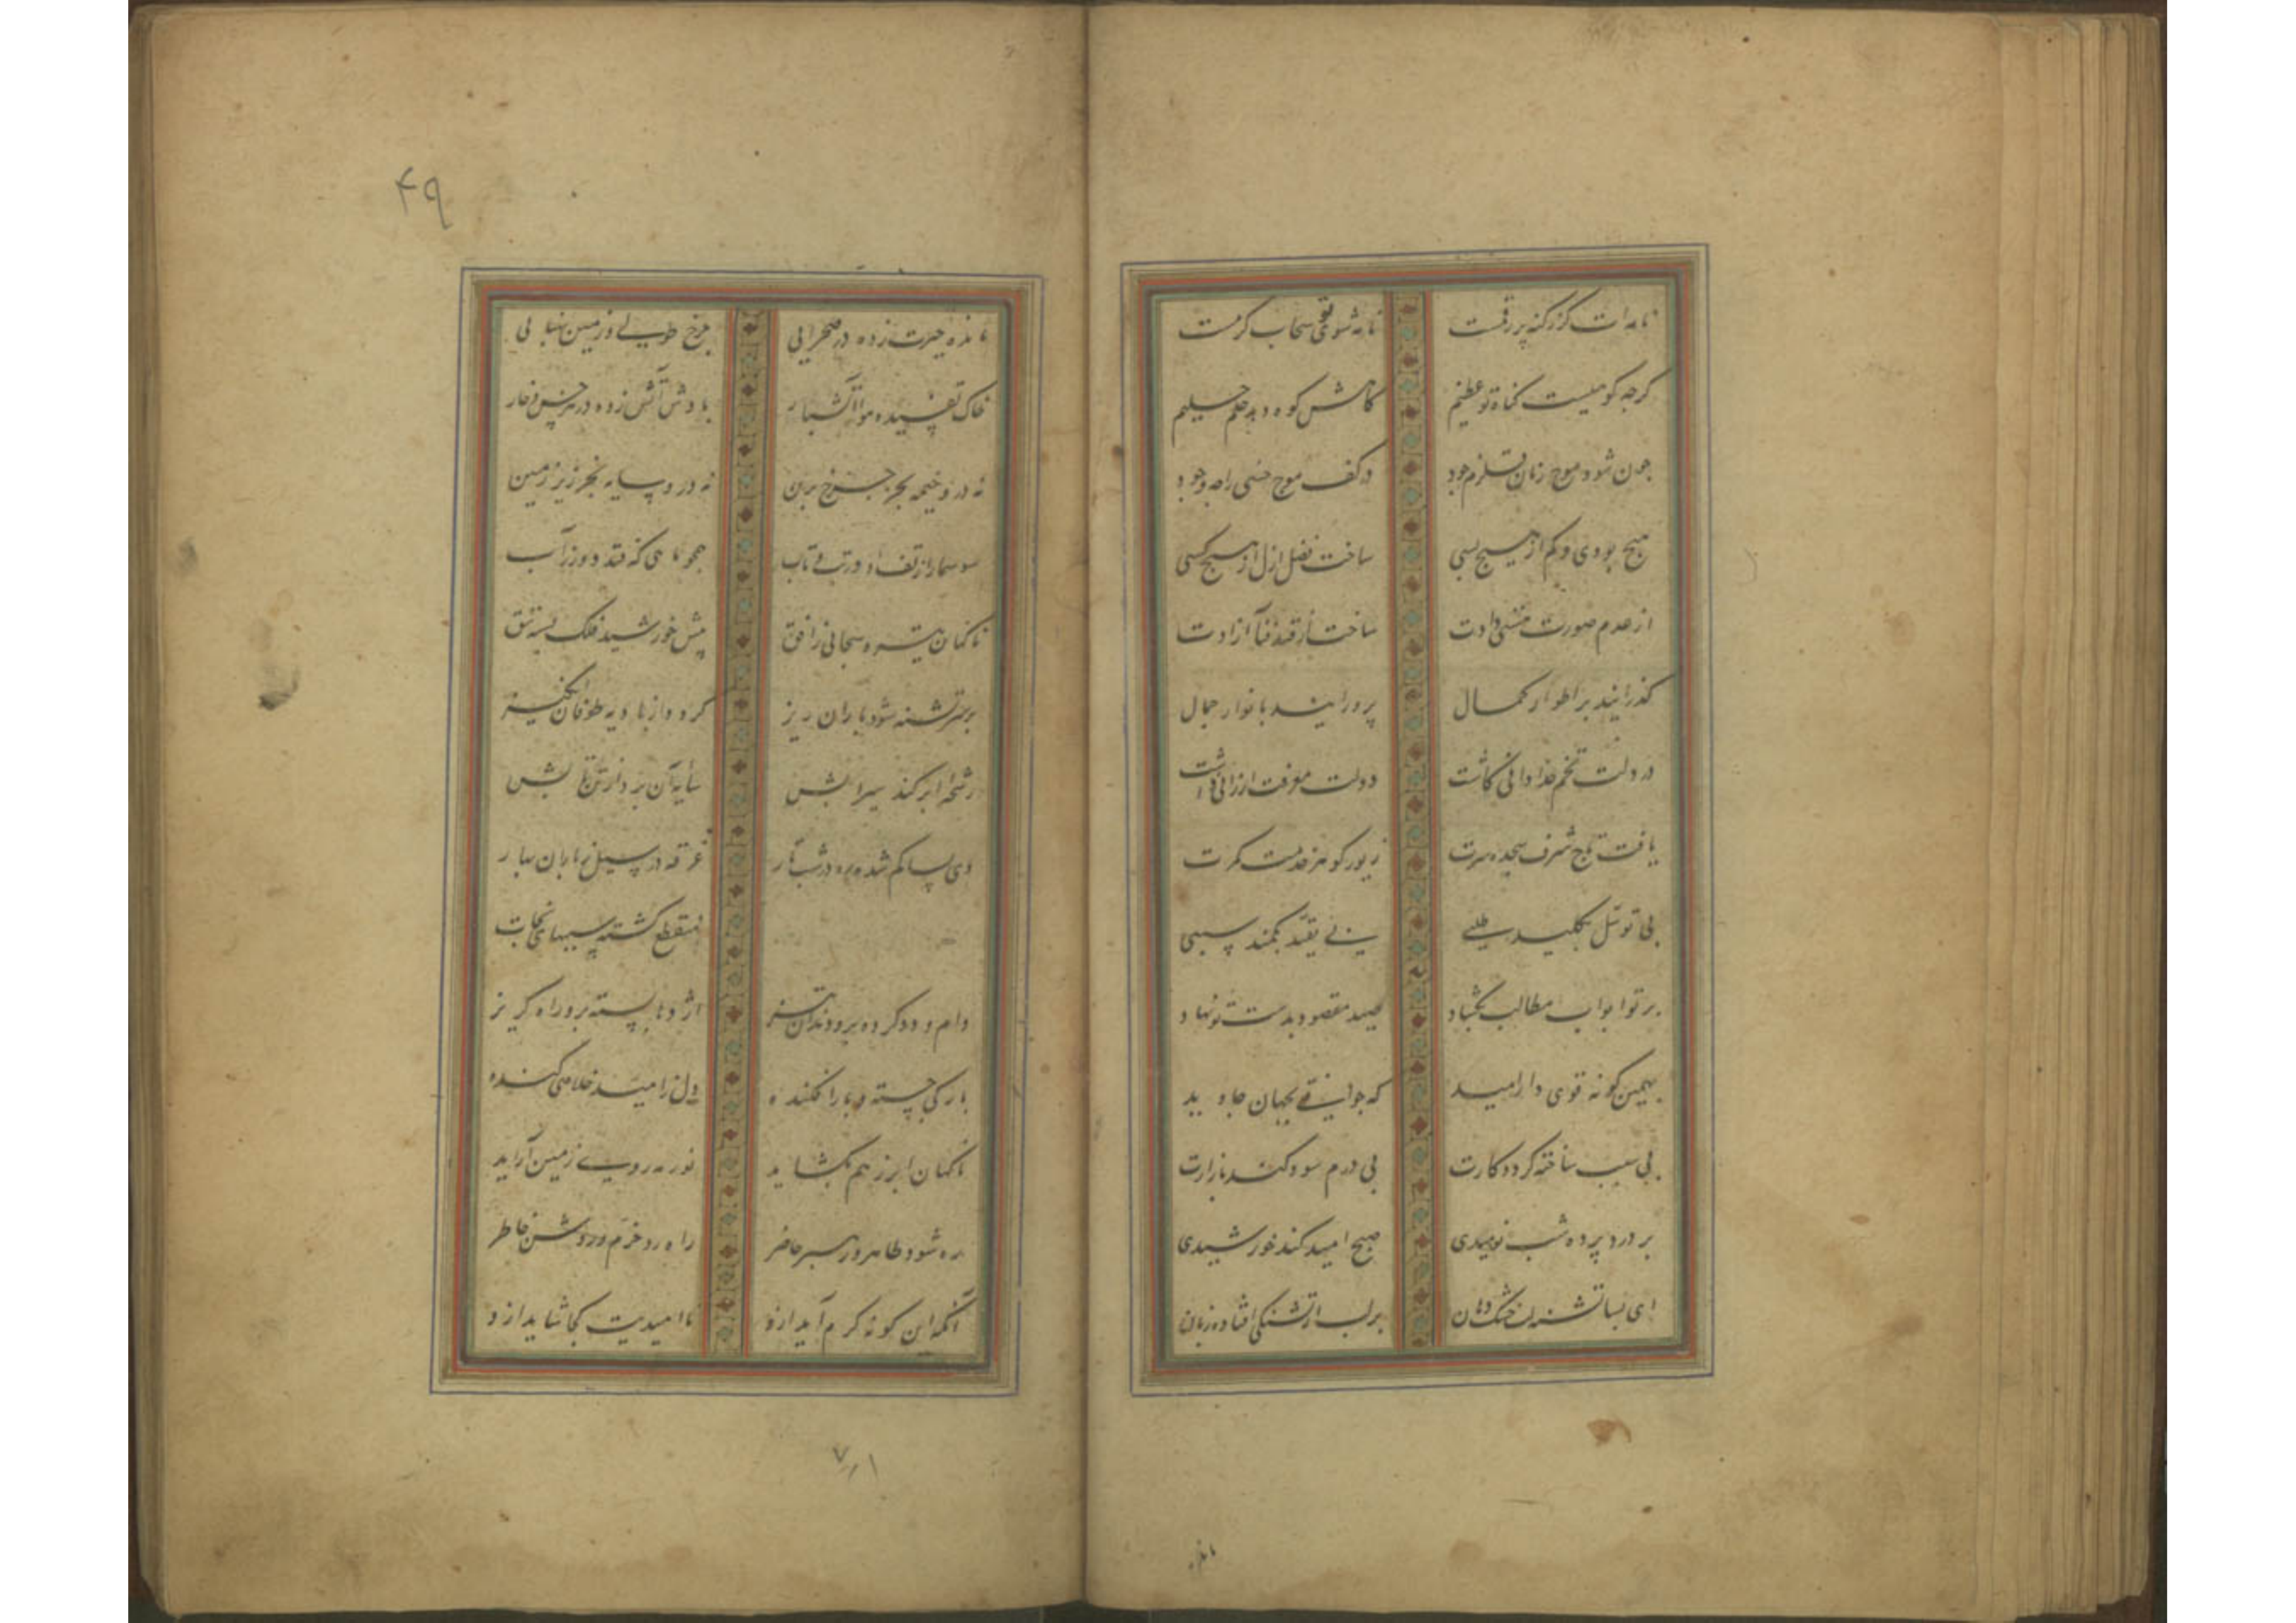 نامه‌ات کز گنه پر رقمست نامه شوی تو سحاب کرمست
کرجه کوهیست کناه تو عظیم کاهش کوه دهد حلم حلیم
جون شود موج زنان قلزم جود در کف موج خسی راجه وجود
هیچ بودی و کم از هیچ بسی ساخت فضل ازل از هیچ کسی
از عدم صورت هستی دادت ساخت از قید فنا آزادت
کذرانید بر اطوار کمال پرورانید بانوار جمال
در دلت تخم خدا دانی کاشت دولت معرفت ارزانی داشت
یافت تاج شرف سجده سرت زیور کوهر خدمت کمرت
بی توسل بکلید طلبی بی تقید بکمند سببی
بر تو ابواب مطالب بکشاد صید مقصود بدست تو نهاد
بهمین کونه قوی دار امید که جوانی بجهان جاوید
بی سبب ساخته کردد کارت بی درم سود کند بازارت
بر درد پرده شب نومیدی صبح امید کند خورشیدی
ای بسا تشنه لب خشک دهان بر لب از تشنکی افتاده زبان
مانده
۴۹
مانده حیرت زده در صحرایی برخ طولی و زمین پهنایی
خاک تفسیده هوا آتشبار بادش آتش زده در هر خس و خار
نه درو خیمه بجز چرخ برین نه درو سایه بجز زیر زمین
سوسمار از تف او در تب و تاب همجو ماهی که فتد دور از آب
ناکهان تیره سحابی ز افق پیش خورشید فلک بسته تتق
بر سر تشنه شود باران ریز کردد از بادیه طوفان انکیز
رشحه ابر کند سیرابش سایه آن برد از تن تابش
وی بسا کم شده ره در شب تار غرقه در سیل ز باران بهار
منقطع کشته سببهای نجات
دام و دد کرده برو دندان تیز اژدها بسته برو راه کریز
بارکی جسته و بار افکنده دل ز امید خلاصی کنده
ناکهان ابر ز هم بکشاید نور مه روی زمین آراید
ره شود ظاهر و رهبر حاضر راه رو خرم و روشن خاطر
آنکه این کونه کرم آید ازو ناامیدیت کجا شاید ازو